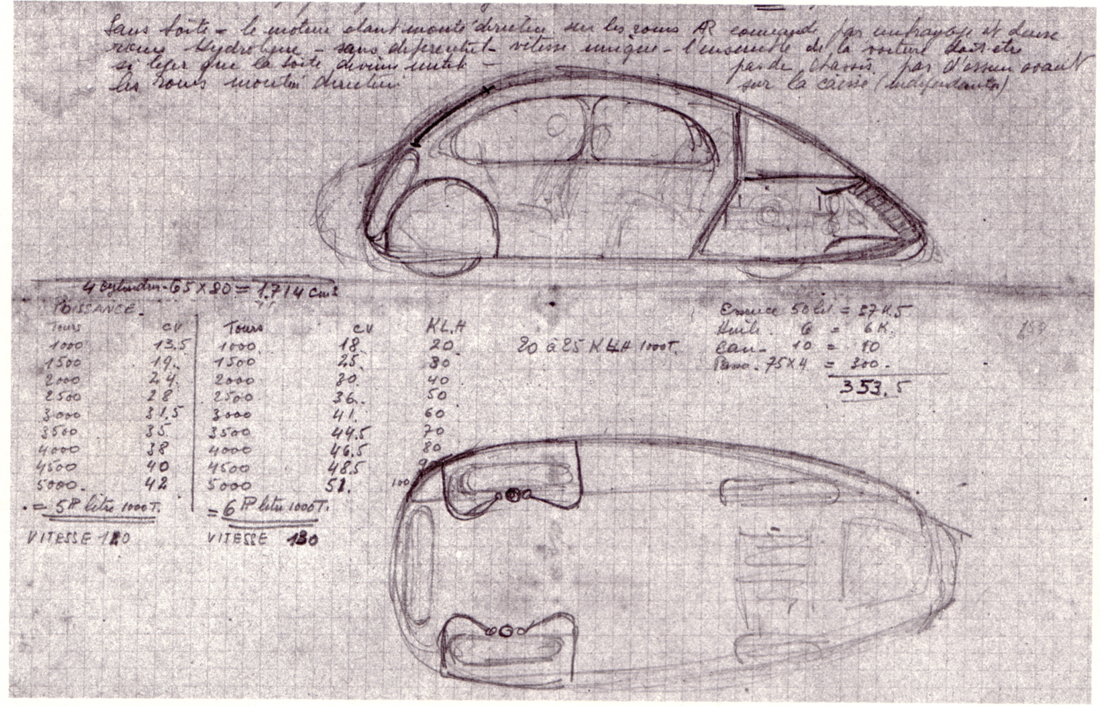 Sans boite - le moteur etant monté direction sur les roues AR comande par embrayage et deux
roues Hydrolique - sans diferentiel - vitesse unique - l'ensemble de la voiture doit etre
si leger que la boite devient inutile - pas de chassis. pas d'essieu avant
les roues montées direction sur la caisse (indépendantes)
4 cylindres - 65 X 80 = 1.714 cm3
PUISSANCE.
Tours CV Tours CV KL.H
1000 13.5 1000 18 20
1500 19. 1500 25 30
2000 24. 2000 30. 40
2500 28 2500 36. 50
3000 31.5 3000 41. 60
3500 35 3500 44.5 70
4000 38 4000 46.5 80
4500 40 4500 48.5
5000. 42 5000 51. 100
= 5 litre 1000 T. = 6 litre 1000 T.
VITESSE VITESSE 130
20 à 25 KLH 1000 T.
Essence 50 lit = 37 K.5
Huile. 6 = 6 K.
Eau - 10 = 10
75 X 4 = 300 -
353.5